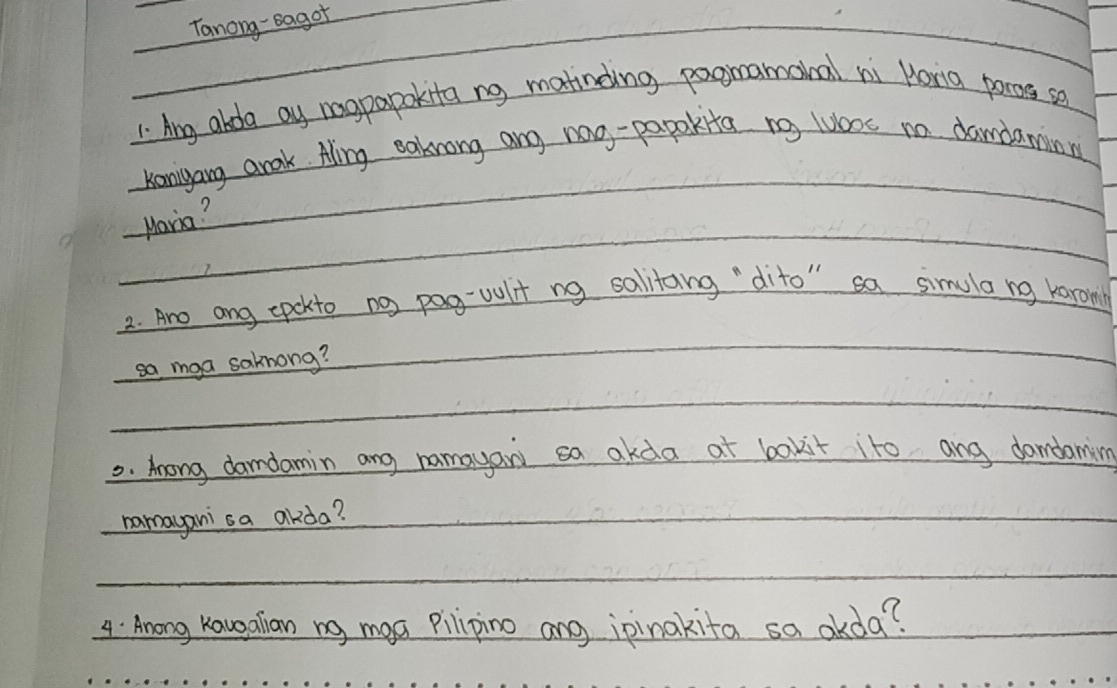 Tanong-sagot
1. Ang akda ay nagpapakita ng matinding pagmamahal ni Maria paras sa
kaniyang anak. Aling saknong ang nag-papakita ng lubos na damdamin ni
Maria?
2. Ano ang epekto ng pag-uulit ng salitang "dito" sa simula ng karamih
sa mga saknong?
3. Anong damdamin ang namayani sa akda at bakit ito ang damdamin
namayani sa akda?
4. Anong kaugalian ng mga Pilipino ang ipinakita sa akda?